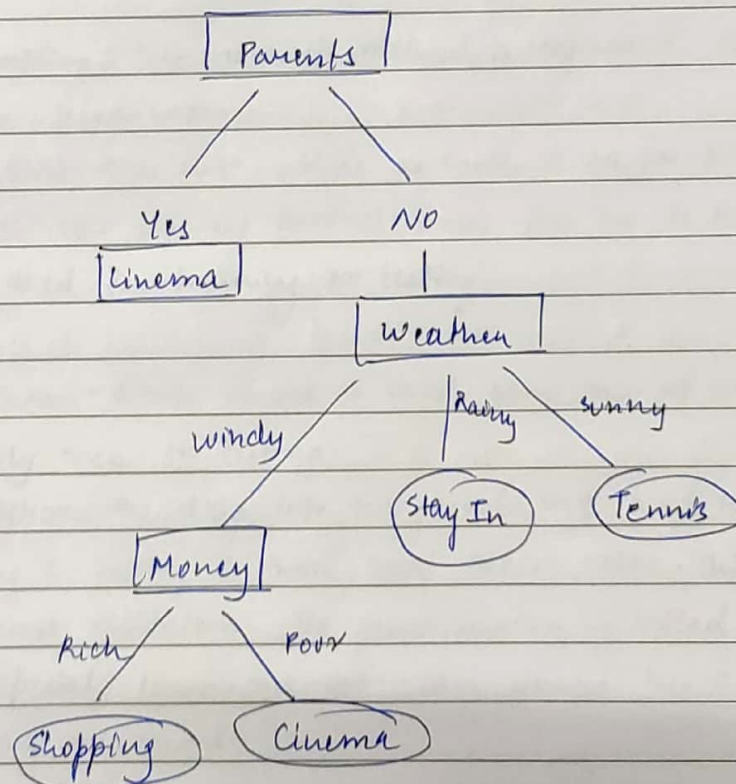 Parents
Yes NO
Cinema
Weather
Windy Rainy Sunny
Stay In Tennis
Money
Rich Poor
Shopping Cinema